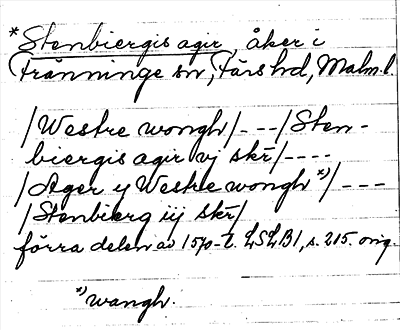 *Stenbiergis agir, åker i
Tränninge sn, Färs hd, Malm.l.
/Westre wongh/ --- /Sten-
biergis agir vj skr/ ----
/Ager y Westre wongh *)/ ---
/Stenbierg iij skr/
förra delen av 1570-t. LSLB1, s. 215. orig.
*) wangh.